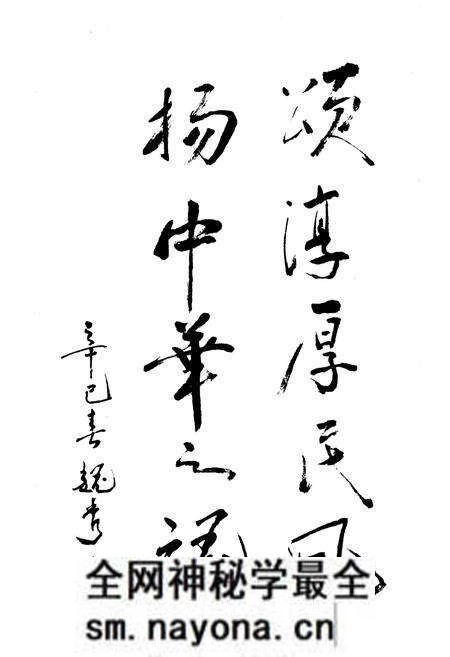 颂淳厚民风
扬中華之
辛巳春魏
全网神秘学最全
sm.nayona.cn